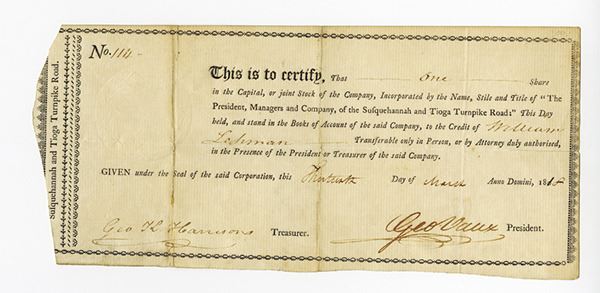 No. 114
This is to certify, That one Share
in the Capital, or joint Stock of the Company, Incorporated by the Name, Stile and Title of "The
President, Managers and Company, of the Sufquehannah and Tioga Turnpike Road:" This Day
held, and stand in the Books of Account of the said Company, to the Credit of William
Lehman Transferable only in Person, or by Attorney duly authorised,
in the Presence of the President or Treasurer of the said Company.
GIVEN under the Seal of the said Corporation, this Thirteenth Day of March Anno Domini, 18
Geo Harrison Treasurer. Geo Vaux President.
Sufquehannah and Tioga Turnpike Road.